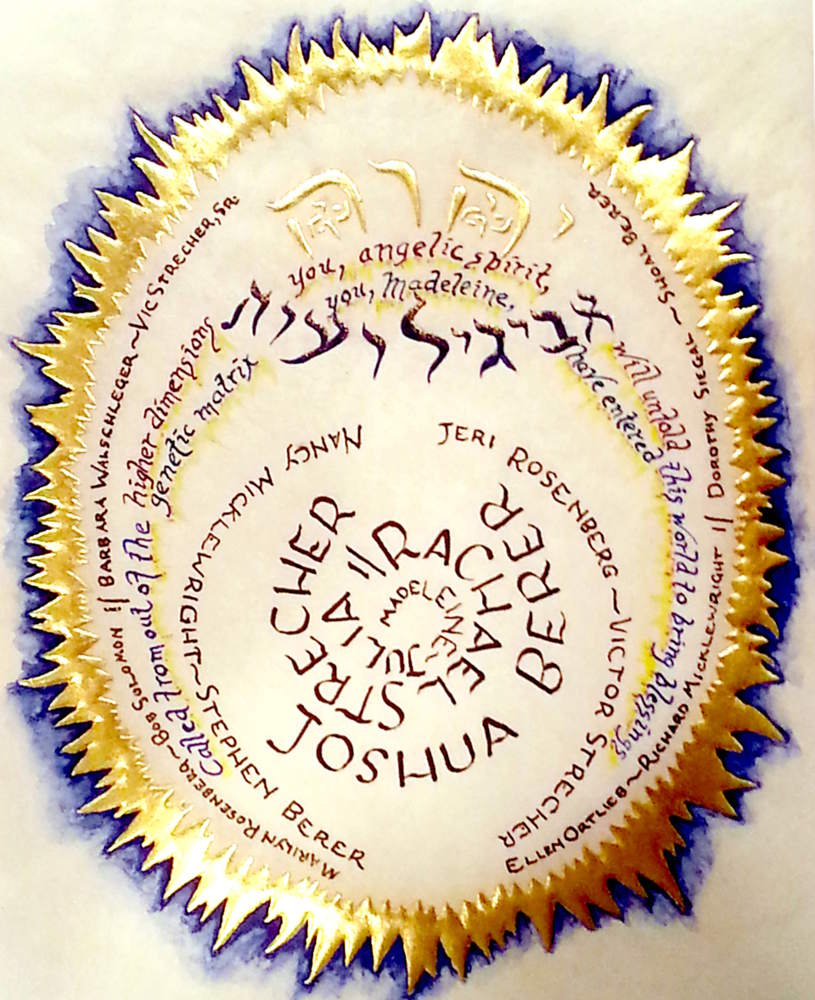 יהוה
you, angelic spirit,
you, Madeleine,
אביגיל
will unfold this world to bring blessings
have entered
Called from out of the higher dimensions
genetic matrix
MARILYN ROSENBERG ~ BOB SOLOMON || BARBARA WALSCHLEGER ~ VIC STRECHER, SR.
ELLEN ORTLIEB ~ RICHARD MICKLEWRIGHT || DOROTHY SIEGAL ~ SMOAL BERER
NANCY MICKLEWRIGHT ~ STEPHEN BERER
JERI ROSENBERG ~ VICTOR STRECHER
JOSHUA BERER
RACHAEL STRECHER
MADELEINE-JULIA //